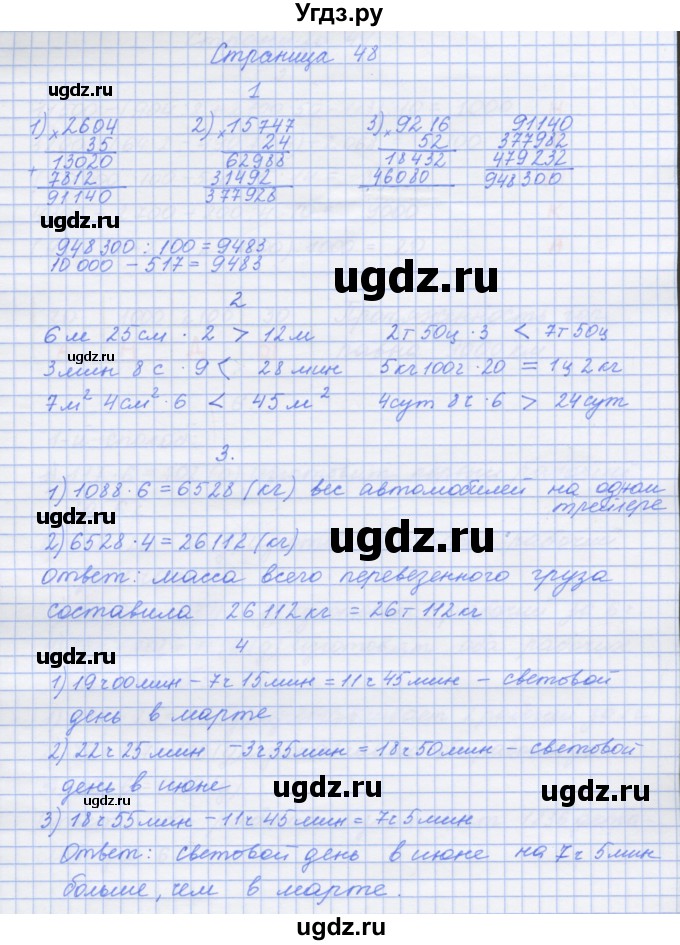 Угдз.ру
Страница 48
ugdz.ru
1
1) × 2604
35
+ 13020
7812
91140
2) × 15747
24
62988
31492
377928
3) × 9216
52
18432
46080
91140
377982
479232
948300
ugdz.ru
948300 : 100 = 9483
10000 - 517 = 9483
ugdz.ru
2
6 м 25 см · 2 > 12 м
2т 50ц · 3 < 7т 50ц
ugdz.ru
3 мин 8 с · 9 < 28 мин
5 кг 100г · 20 = 1ц 2 кг
7 м² 4 см² · 6 < 45 м²
4 сут 8 ч · 6 > 24 сут
3.
1) 1088 · 6 = 6528 (кг) вес автомобилей на одном
трейлере
ugdz.ru
2) 6528 · 4 = 26112 (кг)
ugdz.ru
Ответ: масса всего перевезенного груза
составила 26112 кг = 26т 112 кг
4
ugdz.ru
1) 19 ч 00 мин - 7 ч 15 мин = 11 ч 45 мин - световой
день в марте
2) 22 ч 25 мин - 3 ч 35 мин = 18 ч 50 мин - световой
день в июне
ugdz.ru
ugdz.ru
ugdz.ru
3) 18 ч 55 мин - 11 ч 45 мин = 7 ч 5 мин
Ответ: световой день в июне на 7 ч 5 мин
больше, чем в марте.
ugdz.ru
ugdz.ru